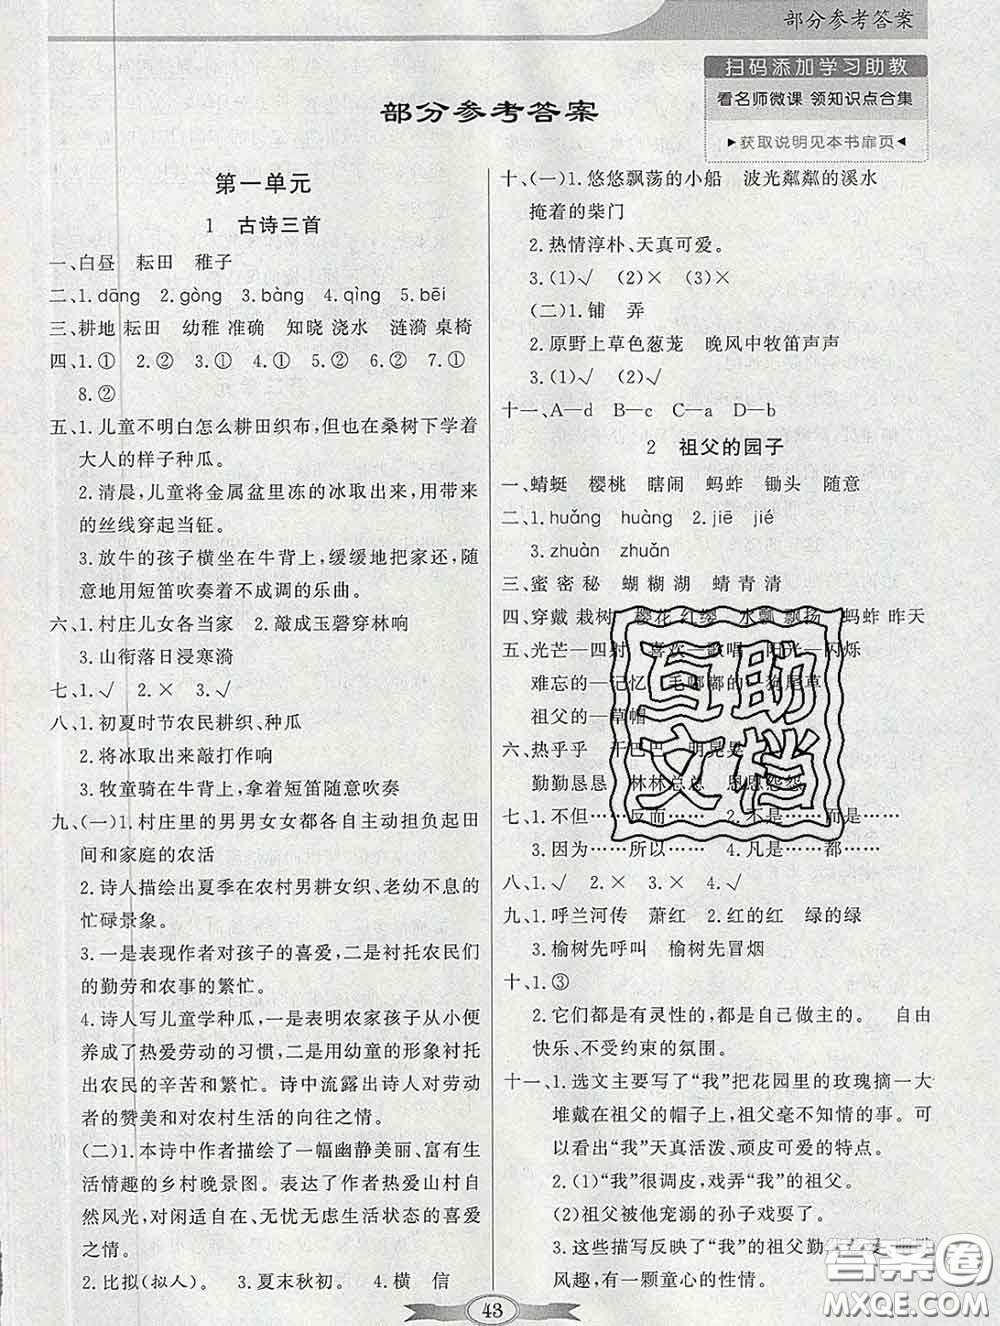 部分参考答案
扫码添加学习助教
看名师微课 领知识点合集
▶获取说明见本书扉页◀
部分参考答案
第一单元
1 古诗三首
一、白昼 耘田 稚子
二、1.dāng 2.gòng 3.bàng 4.qìng 5.bēi
三、耕地 耘田 幼稚 准确 知晓 浇水 涟漪 桌椅
四、1.① 2.② 3.① 4.① 5.② 6.② 7.①
8.②
五、1.儿童不明白怎么耕田织布,但在桑树下学着
大人的样子种瓜。
2.清晨,儿童将金属盆里冻的冰取出来,用带
的丝线穿起当钲。
3.放牛的孩子横坐在牛背上,缓缓地把家还,随
意地用短笛吹奏着不成调的乐曲。
六、1.村庄儿女各当家 2.敲成玉磬穿林响
3.山衔落日浸寒漪
七、1.√ 2.× 3.√
八、1.初夏时节农民耕织、种瓜
2.将冰取出来敲打作响
3.牧童骑在牛背上,拿着短笛随意吹奏
九、(一)1.村庄里的男男女女都各自主动担负起田
间和家庭的农活
2.诗人描绘出夏季在农村男耕女织、老幼不息的
忙碌景象。
3.一是表现作者对孩子的喜爱,二是衬托农民们
的勤劳和农事的繁忙。
4.诗人写儿童学种瓜,一是表明农家孩子从小便
养成了热爱劳动的习惯,二是用幼童的形象衬托
出农民的辛苦和繁忙。诗中流露出诗人对劳动
者的赞美和对农村生活的向往之情。
(二)1.本诗中作者描绘了一幅幽静美丽、富有生
活情趣的乡村晚景图。表达了作者热爱山村自
然风光,对闲适自在、无忧无虑生活状态的喜爱
之情。
2.比拟(拟人)。 3.夏末秋初。 4.横 信
十、(一)1.悠悠飘荡的小船 波光粼粼的溪水
掩着的柴门
2.热情淳朴、天真可爱。
3.(1)√ (2)× (3)×
(二)1.铺 弄
2.原野上草色葱茏 晚风中牧笛声声
3.(1)√ (2)√
十一、A—d B—c C—a D—b
2 祖父的园子
一、蜻蜓 樱桃 瞎闹 蚂蚱 锄头 随意
二、1.huǎng huàng 2.jiē jié
3.zhuàn zhuǎn
三、蜜 密 秘 蝴 糊 湖 蜻 青 清
四、穿戴 栽树 樱花 红缨 水瓢 飘扬 蚂蚱 昨天
五、光芒—四射 喜欢—歌唱 阳光—闪烁
难忘的—记忆 毛嘟嘟的—狗尾草
祖父的—草帽
六、热乎乎 干巴巴 明晃晃
勤勤恳恳 林林总总 恩恩怨怨
七、1.不但……反而…… 2.不是……而是……
3.因为……所以…… 4.凡是……都……
八、1.√ 2.× 3.× 4.√
九、1.呼兰河传 萧红 2.红的红 绿的绿
3.榆树先呼叫 榆树先冒烟
十、1.③
2.它们都是有灵性的,都是自己做主的。 自由
快乐、不受约束的氛围。
十一、1.选文主要写了“我”把花园里的玫瑰摘一大
堆戴在祖父的帽子上,祖父毫不知情的事。可
以看出“我”天真活泼、顽皮可爱的特点。
2.(1)“我”很调皮,戏耍“我”的祖父。
(2)祖父被他宠溺的孙子戏耍了。
3.这些描写反映了“我”的祖父勤
风趣,有一颗童心的性情。
43
互助
文档
答案圈
MXQE.COM